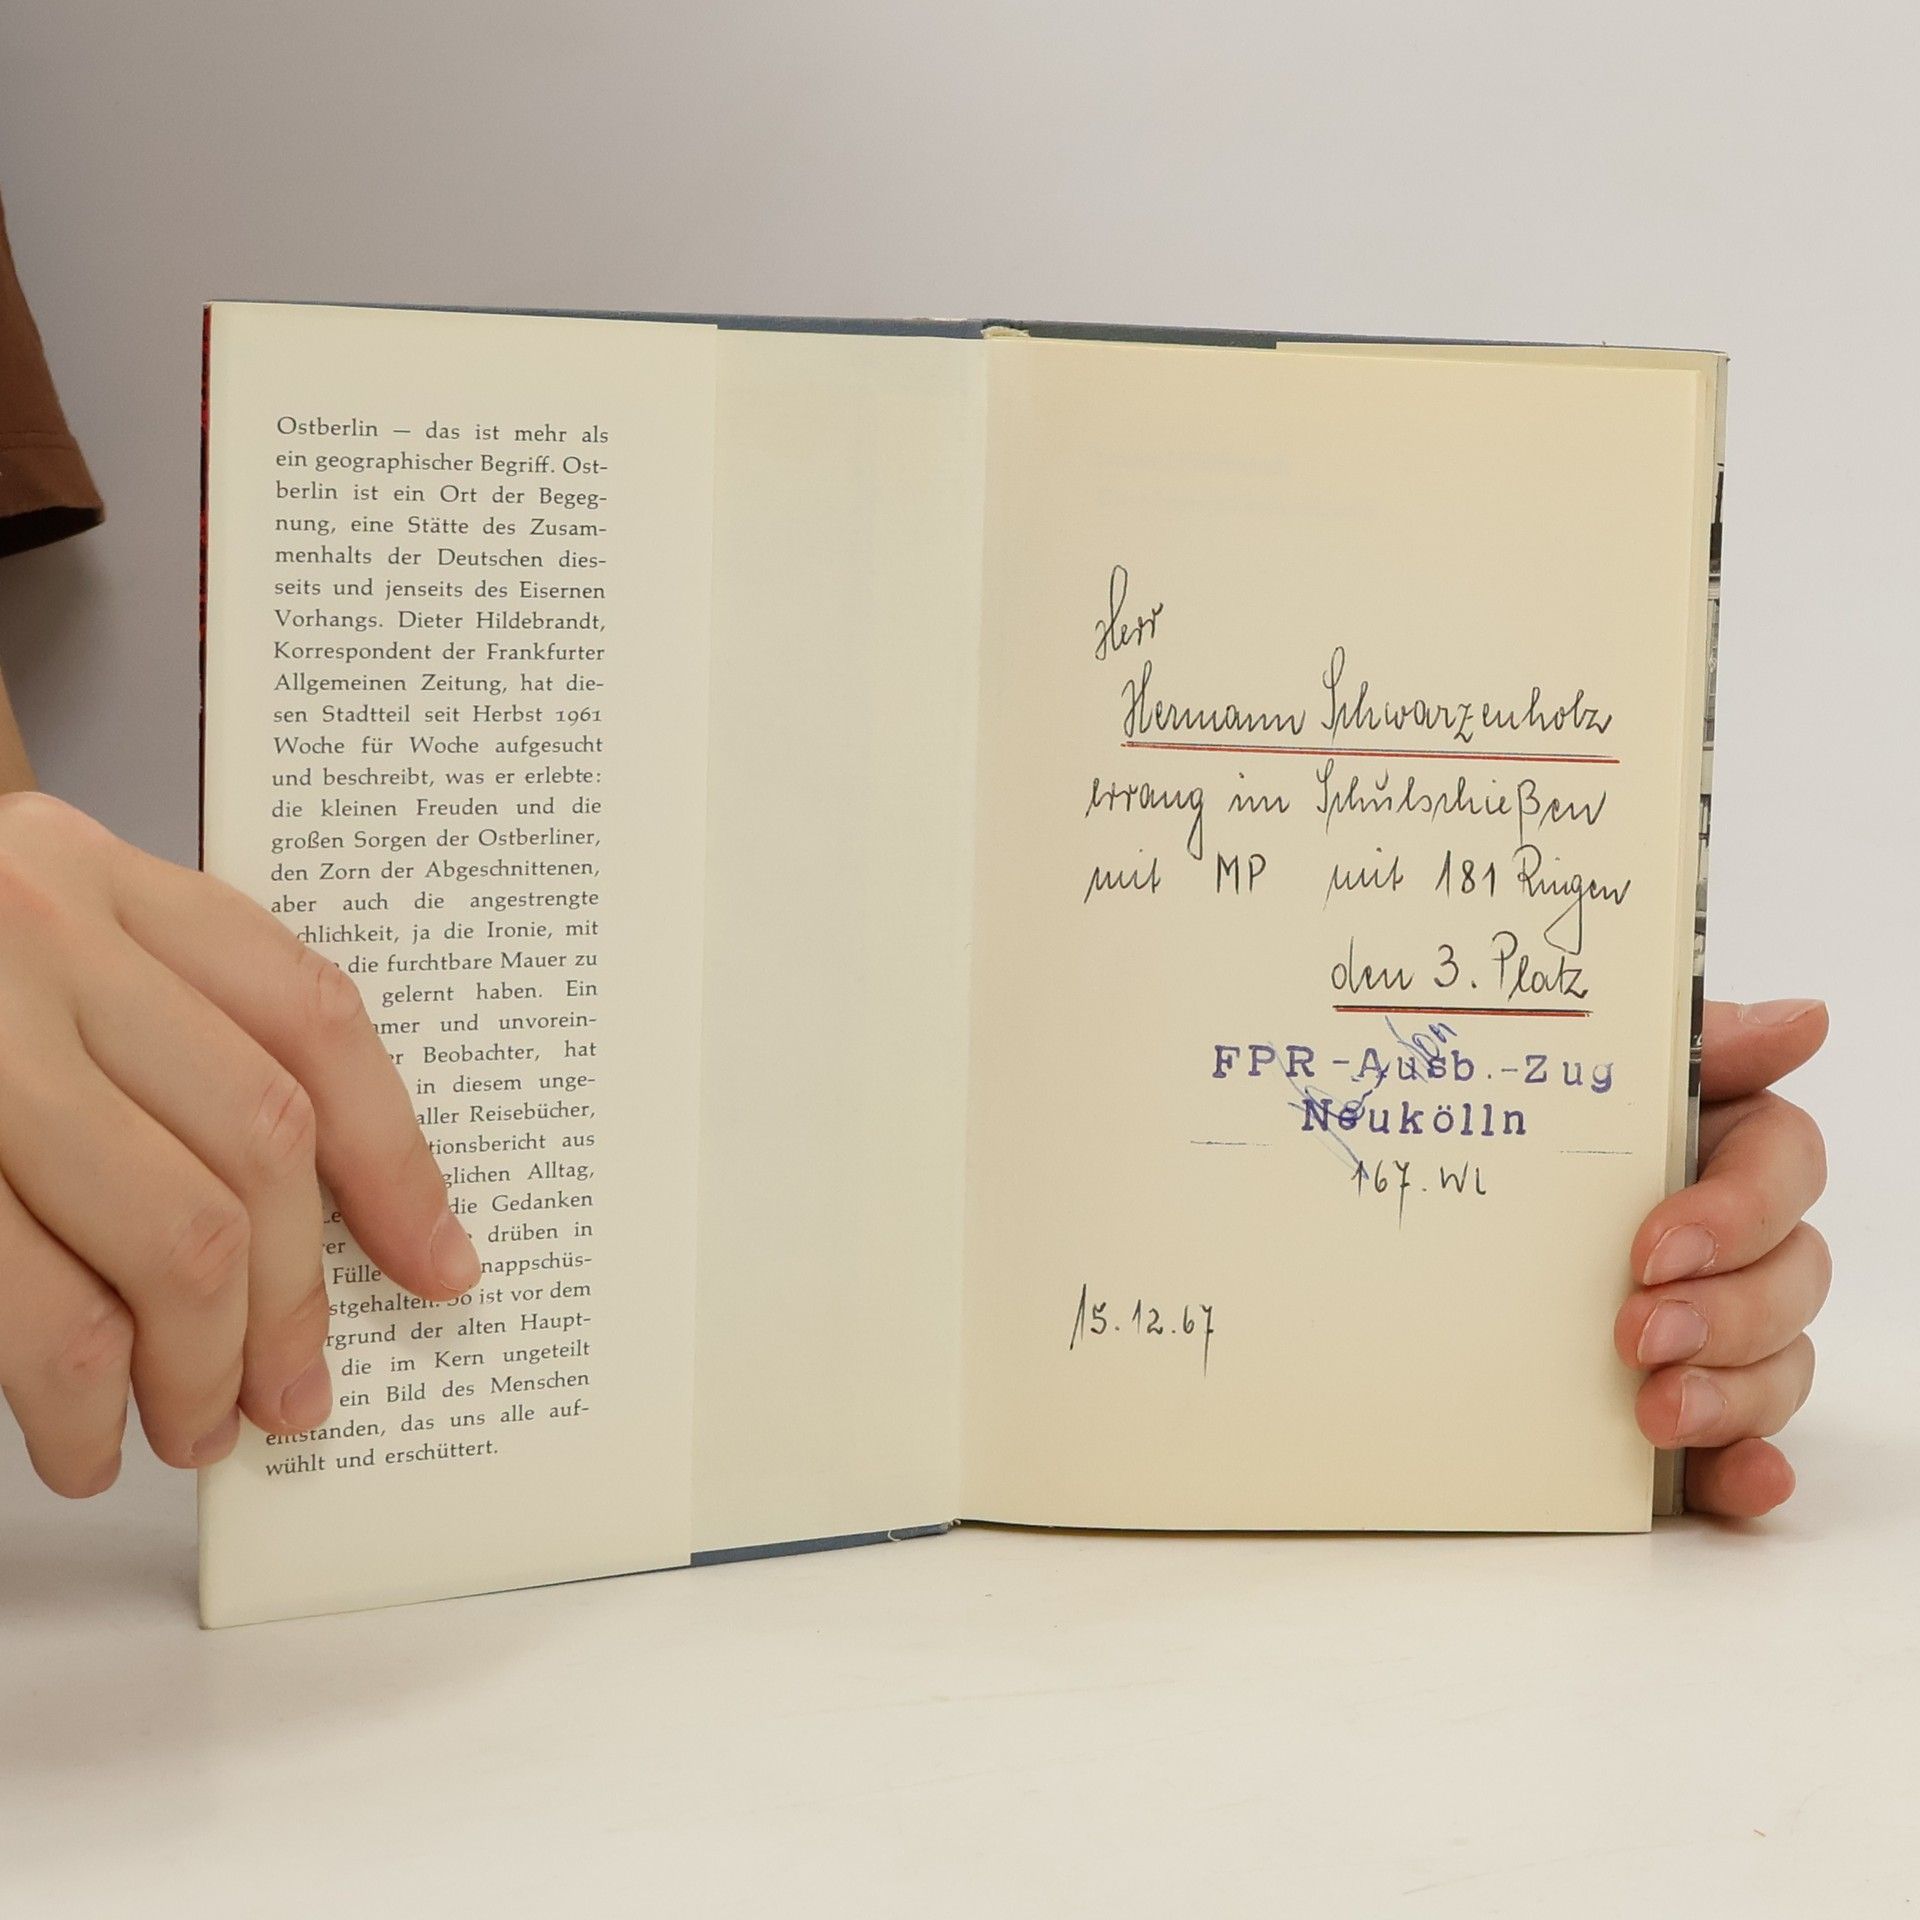 Ostberlin — das ist mehr als
ein geographischer Begriff. Ost-
berlin ist ein Ort der Begeg-
nung, eine Stätte des Zusam-
menhalts der Deutschen dies-
seits und jenseits des Eisernen
Vorhangs. Dieter Hildebrandt,
Korrespondent der Frankfurter
Allgemeinen Zeitung, hat die-
sen Stadtteil seit Herbst 1961
Woche für Woche aufgesucht
und beschreibt, was er erlebte:
die kleinen Freuden und die
großen Sorgen der Ostberliner,
den Zorn der Abgeschnittenen,
aber auch die angestrengte
chlichkeit, ja die Ironie, mit
die furchtbare Mauer zu
gelernt haben. Ein
amer und unvorein-
er Beobachter, hat
in diesem unge-
aller Reisebücher,
tionsbericht aus
glichen Alltag,
die Gedanken
rer drüben in
Fülle nappschüs-
stgehalten. So ist vor dem
rgrund der alten Haupt-
die im Kern ungeteilt
ein Bild des Menschen
entstanden, das uns alle auf-
wühlt und erschüttert.
Herr
Hermann Schwarzenholz
errang im Schulschießen
mit MP mit 181 Ringen
den 3. Platz
FPR-Ausb.-Zug
Neukölln
167. WL
15.12.67